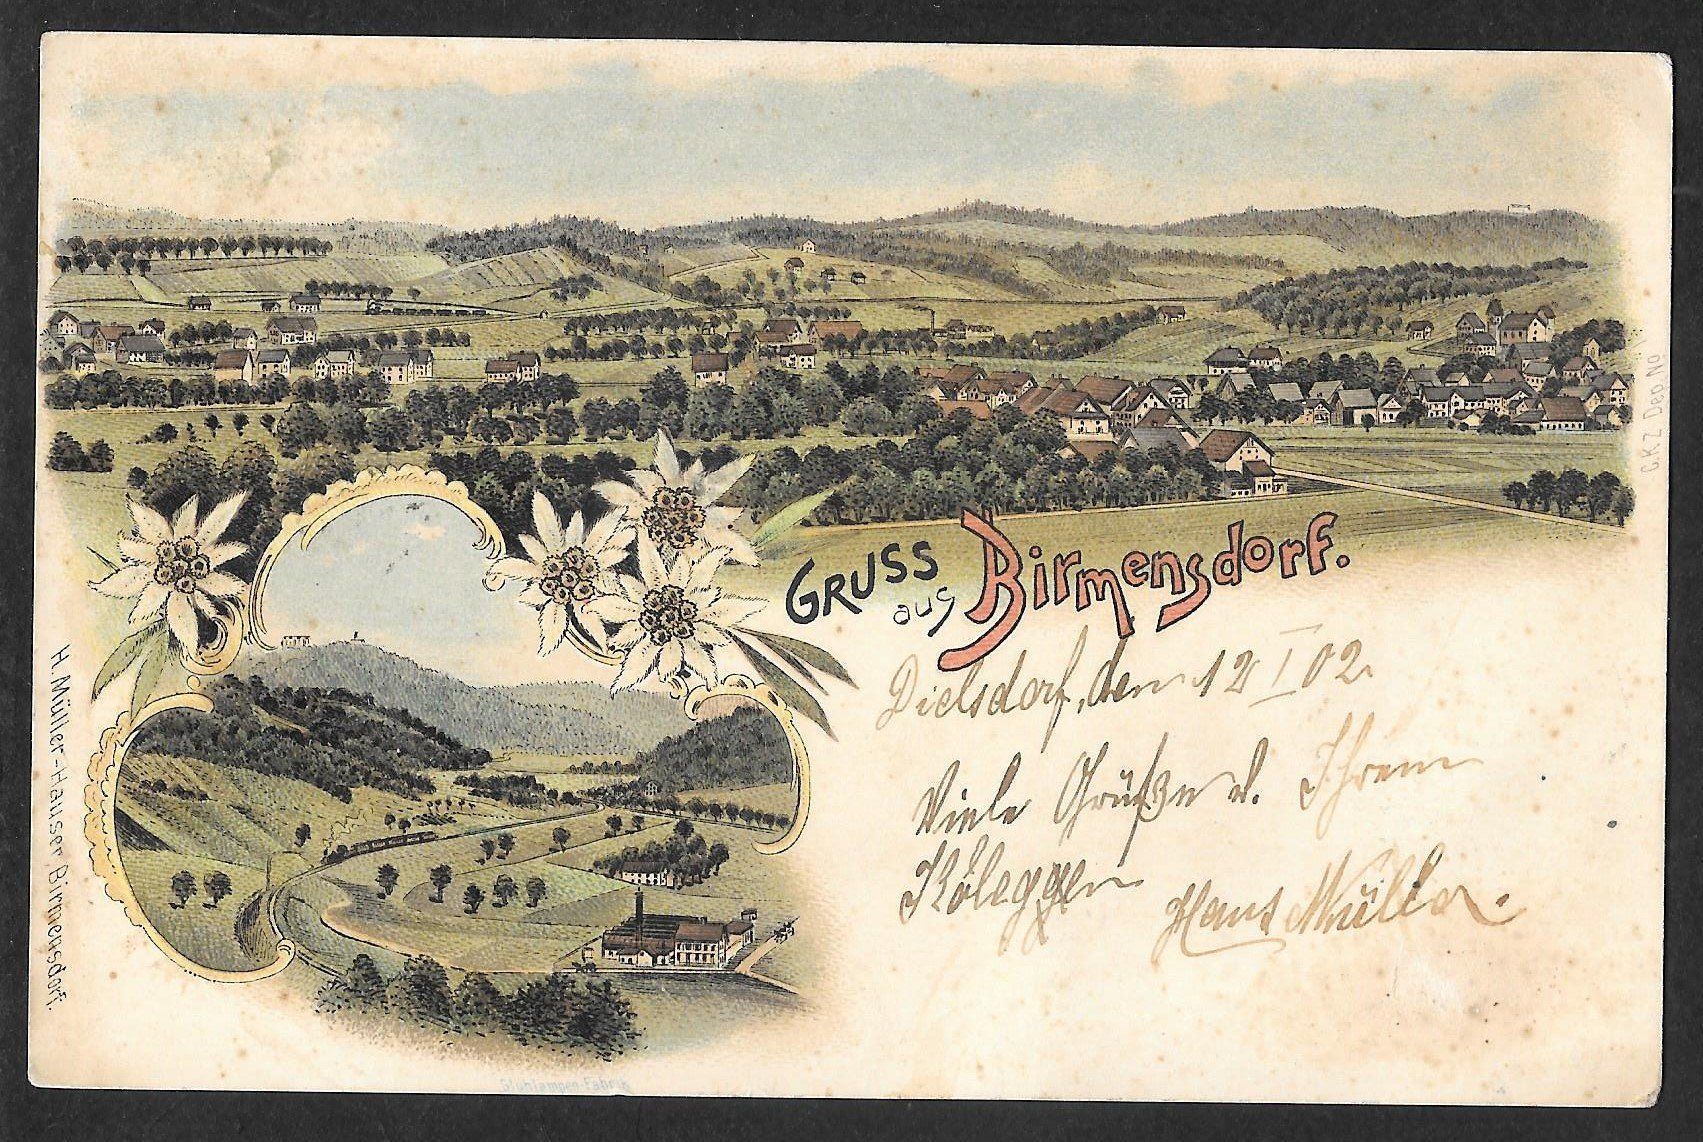 GRUSS
aus Birmensdorf.
Dielsdorf, den 12 I 02.
Viele Grüße v. Ihrem
Kolegen
Hans Müller.
H. Müller-Hauser Birmensdorf.
C.K.Z. Dep. No
Glühlampen-Fabrik